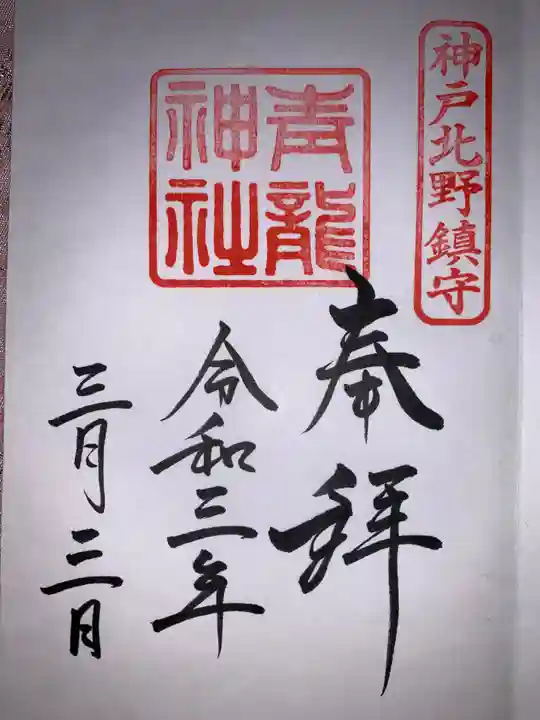 神戸北野鎮守
奉拝
青龍
神社
令和三年
三月三日